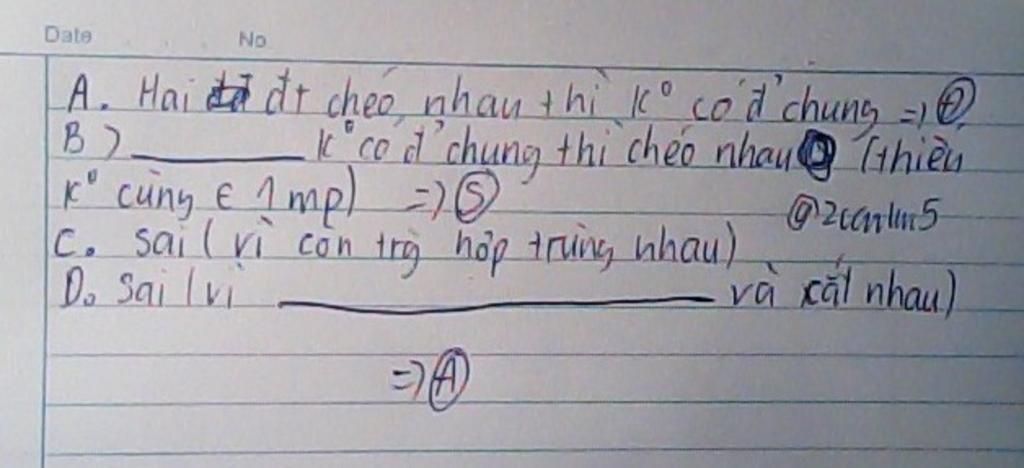 Date No
A. Hai đt chéo nhau thì k° có đ' chung => Đ
B) ________ k° có đ' chung thì chéo nhau (thiếu
k° cùng ∈ 1 mp) => S
@2ccnlm5
C. Sai (vì còn trg hợp trùng nhau)
D. Sai (vì ________ và cắt nhau)
=> A